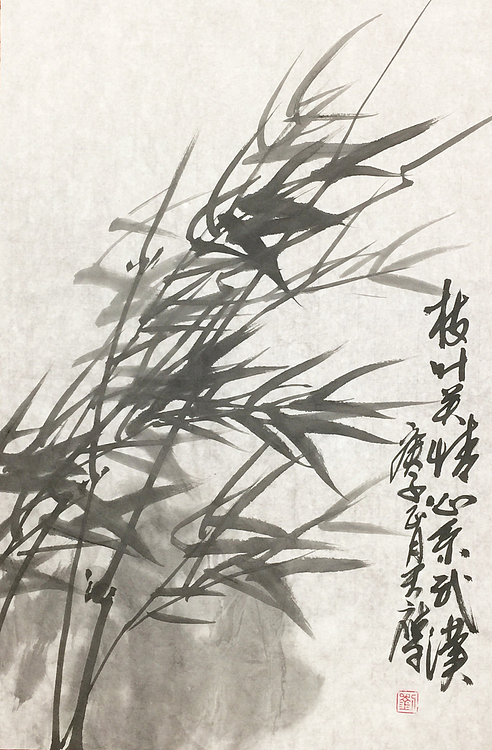 枝叶关情心系武漢
庚子正月
劉